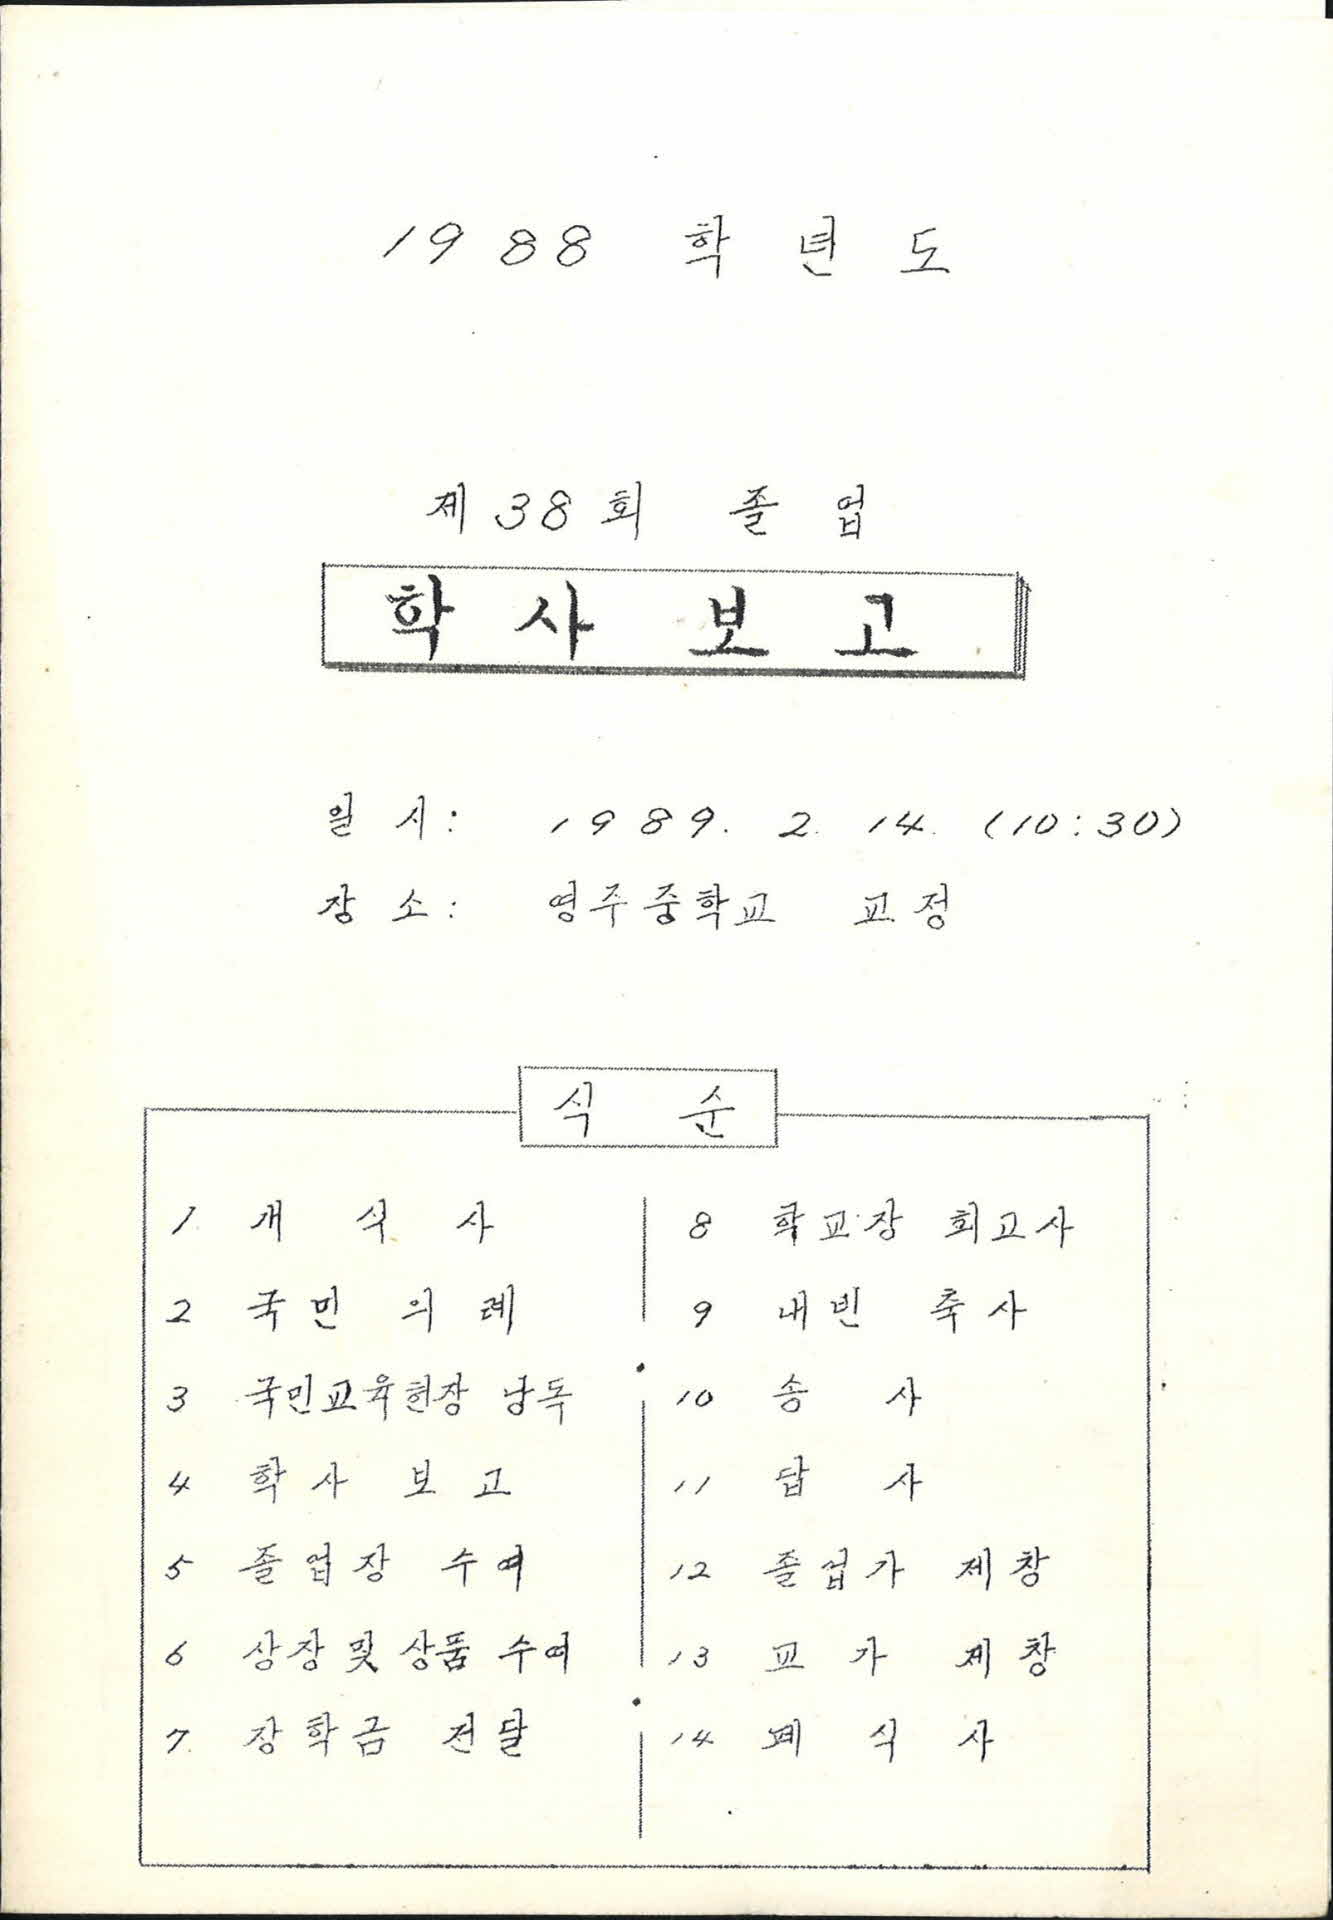 1988 학년도
제38회 졸업
학사보고
일시: 1989. 2. 14. (10:30)
장소: 영주중학교 교정
식순
1. 개식사
2 국민의례
3 국민교육헌장 낭독
4 학사보고
5 졸업장 수여
6 상장 및 상품 수여
7. 장학금 전달
8 학교장 회고사
9 내빈 축사
10 송사
11 답사
12 졸업가 제창
13 교가 제창
14 폐식사